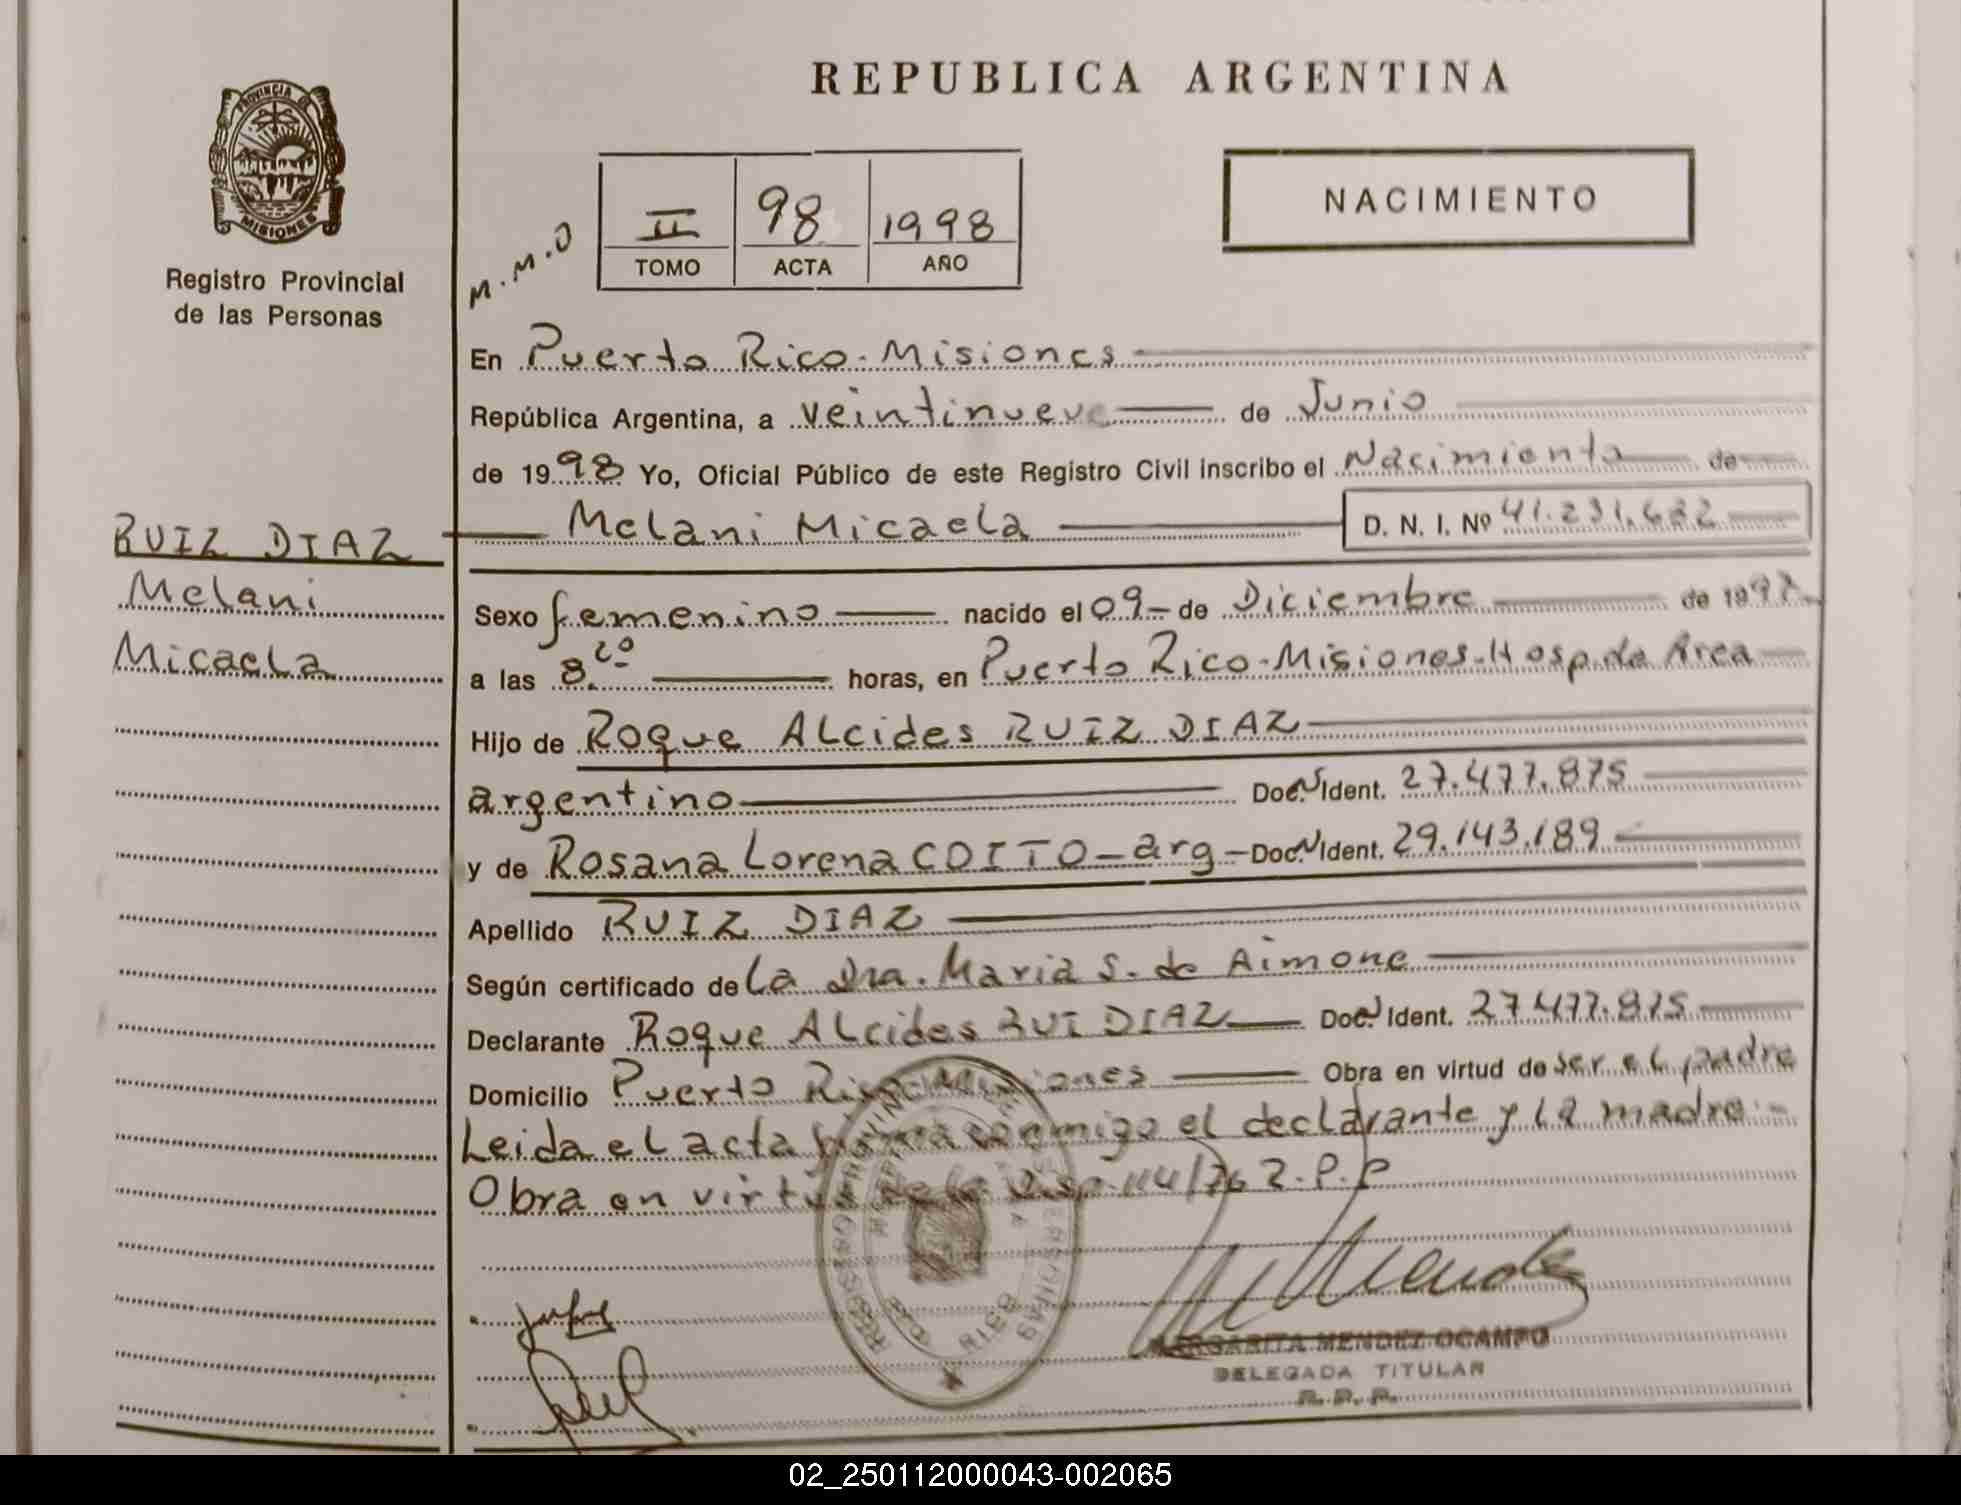 REPUBLICA ARGENTINA
PROVINCIA DE MISIONES
Registro Provincial
de las Personas
M.M.O
II 98 1998
TOMO ACTA AÑO
NACIMIENTO
En Puerto Rico - Misiones
República Argentina, a veintinueve de Junio
de 1998 Yo, Oficial Público de este Registro Civil inscribo el Nacimiento de
Melani Micaela D. N. I. Nº 41.231.622
RUIZ DIAZ
Melani
Micaela
Sexo femenino nacido el 09 - de Diciembre de 1997
a las 8.20 horas, en Puerto Rico - Misiones - Hosp. de Area
Hijo de Roque Alcides RUIZ DIAZ
argentino Doc. N Ident. 27.477.875
y de Rosana Lorena COITO - arg - Doc. N Ident. 29.143.189
Apellido RUIZ DIAZ
Según certificado de La Dra. Maria S. de Aimone
Declarante Roque Alcides RUI DIAZ Doc. N Ident. 27.477.875
Domicilio Puerto Rico Misiones Obra en virtud de ser el padre
Leida el acta firma conmigo el declarante y la madre. -
Obra en virtud de la Disp. 114/76 R.P.P
MARGARITA MENDEZ OCAMPO
DELEGADA TITULAR
R. P. P.
02_250112000043-002065